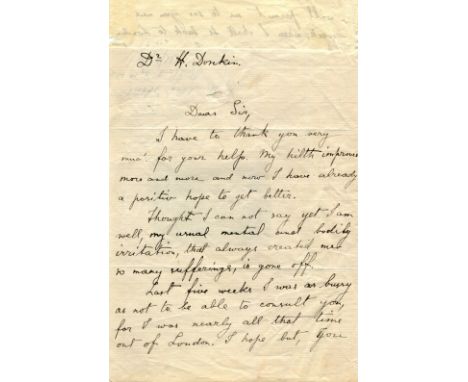 Dr H. Donkin,
Dear Sir,
I have to thank you very
much for your help. My hilth improves
more and more and now I have already
a positiv hope to get better.
Thought I can not say yet I am
well, my usual mental and bodily
irritation, that always created me
so many sufferings, is gone off.
Last five weeks I was as busy
as not to be able to consult you,
for I was nearly all that time
out of London. I hope but,